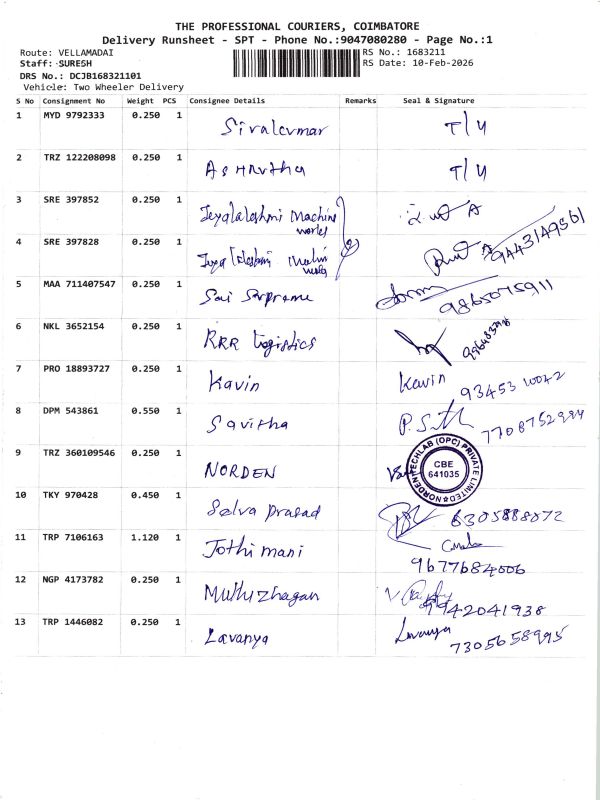 THE PROFESSIONAL COURIERS, COIMBATORE
Delivery Runsheet - SPT - Phone No.:9047080280 - Page No.:1
Route: VELLAMADAI
RS No.: 1683211
Staff: SURESH
RS Date: 10-Feb-2026
DRS No.: DCJB168321101
Vehicle: Two Wheeler Delivery
S No Consignment No Weight PCS Consignee Details Remarks Seal & Signature
1 MYD 9792333 0.250 1 Sivakumar T/U
2 TRZ 122208098 0.250 1 T/U
3 SRE 397852 0.250 1 Jeyalakshmi Machine works
4 SRE 397828 0.250 1 9443149561
5 MAA 711407547 0.250 1 Sai Supreme 9865075911
6 NKL 3652154 0.250 1 RRR Logistics
7 PRO 18893727 0.250 1 Kavin Kavin 93453 10042
8 DPM 543861 0.550 1 Savitha
9 TRZ 360109546 0.250 1 NORDEN NORDEN TECHLAB (OPC) PRIVATE LIMITED CBE 641035
10 TKY 970428 0.450 1 Selva prasad
11 TRP 7106163 1.120 1 Jothi mani
12 NGP 4173782 0.250 1 Muthuzhagan 9942041938
13 TRP 1446082 0.250 1 Lavanya Lavanya 7305658995